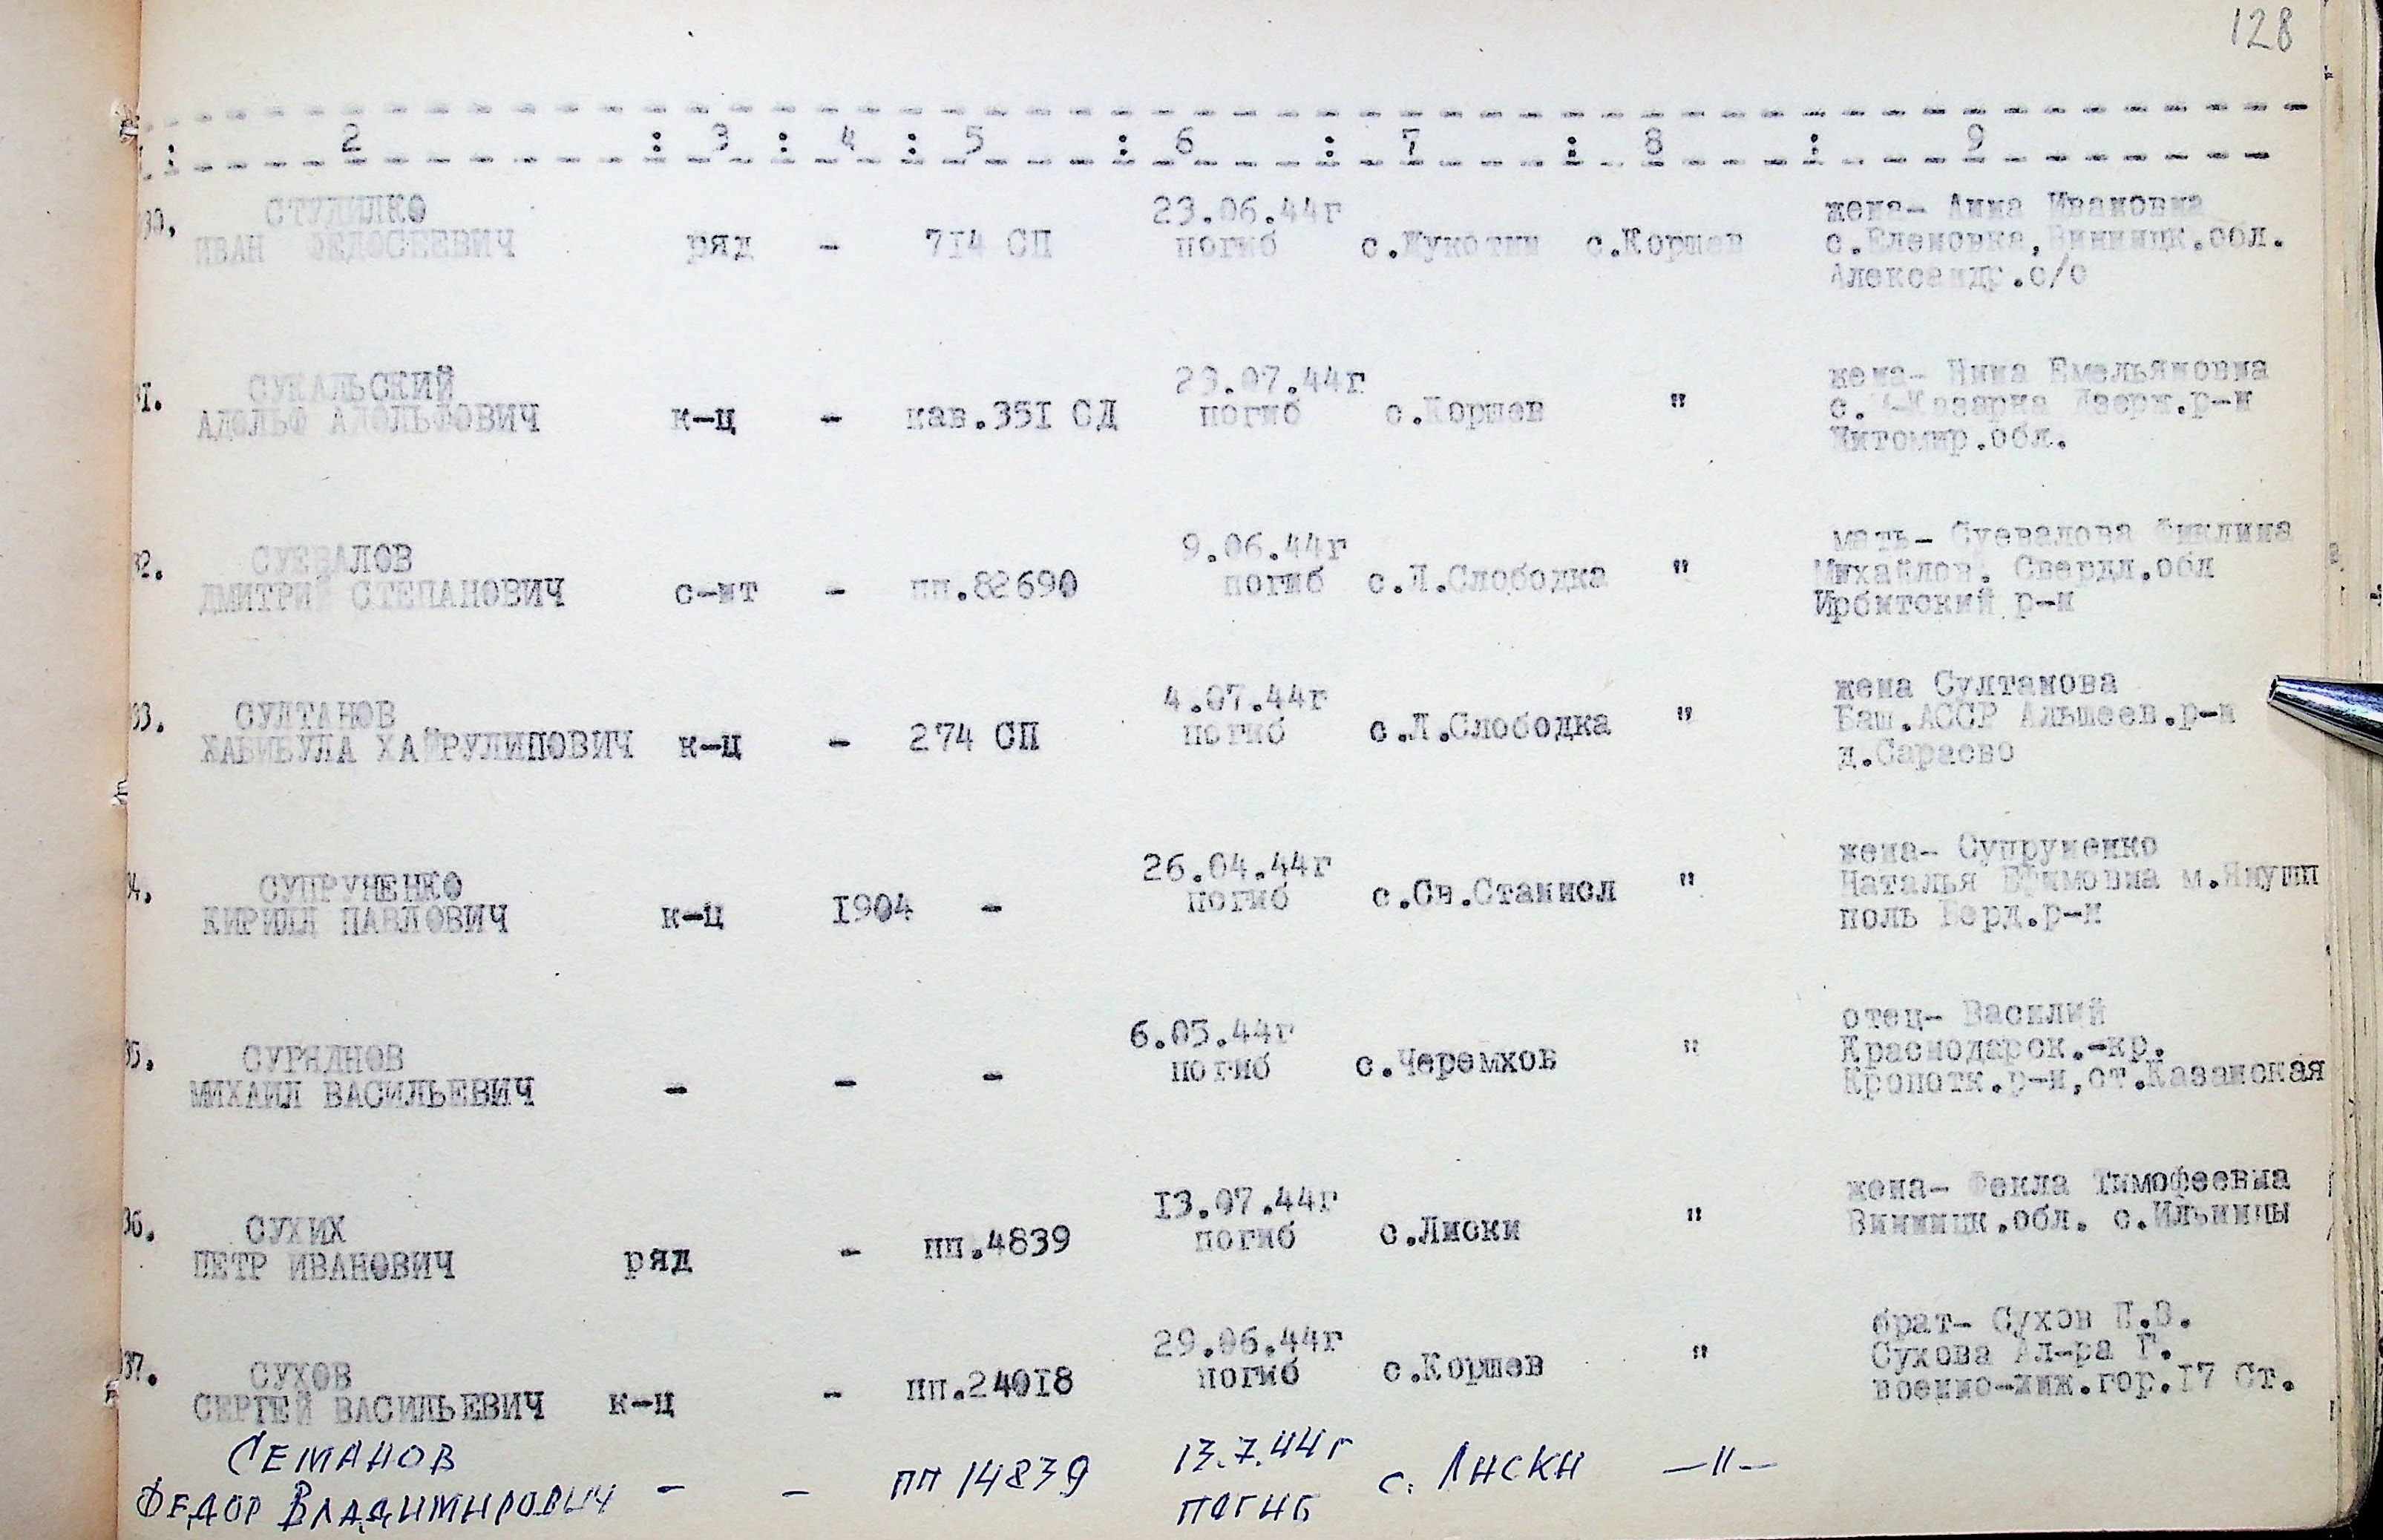 128
: 2 : 3 : 4 : 5 : 6 : 7 : 8 : 9
30. СТУЛИЛКО 23.06.44г жена- Анна Ивановна
ИВАН ФЕДОСЕЕВИЧ ряд - 714 СП погиб с.Жукотин с.Коршев с.Еленовка, Винницк.обл.
Александр.с/с
31. СУКАЛЬСКИЙ 23.07.44г жена- Нина Емельяновна
АДОЛЬФ АДОЛЬФОВИЧ к-ц - кав.35I СД погиб с.Коршев " с. Дзерж.р-н
Житомир.обл.
32. СУЕВАЛОВ 9.06.44г мать- Суевалова
ДМИТРИЙ СТЕПАНОВИЧ с-нт - пп.82690 погиб с.Л.Слободка " Михайлов. Свердл.обл
Ирбитский р-н
33. СУЛТАНОВ 4.07.44г жена Султанова
ХАБИБУЛА ХАЙРУЛИПОВИЧ к-ц - 274 СП погиб с.Л.Слободка " Баш.АССР Альшеев.р-н
д.Сараево
34. СУПРУНЕНКО 26.04.44г жена- Супруненко
КИРИЛЛ ПАВЛОВИЧ к-ц I904 - погиб с.Св.Станисл " Наталья Ефимовна м.Янушп
поль Берд.р-н
35. СУРЯДНОВ 6.05.44г отец- Василий
МИХАИЛ ВАСИЛЬЕВИЧ - - - погиб с.Черемхов " Краснодарск.-кр.
Кропотк.р-н,ст.Казанская
36. СУХИХ I3.07.44г жена- Фекла Тимофеевна
ПЕТР ИВАНОВИЧ ряд - пп.4839 погиб с.Лиски " Винницк.обл. с.Ильинцы
37. СУХОВ 29.06.44г брат- Сухов П.В.
СЕРГЕЙ ВАСИЛЬЕВИЧ к-ц - пп.240I8 погиб с.Коршев " Сухова Ал-ра Г.
военно-инж.гор.I7 Ст.
СЕМАНОВ 13.7.44г
ФЕДОР ВЛАДИМИРОВИЧ - - пп 14839 погиб с. Лиски -"-